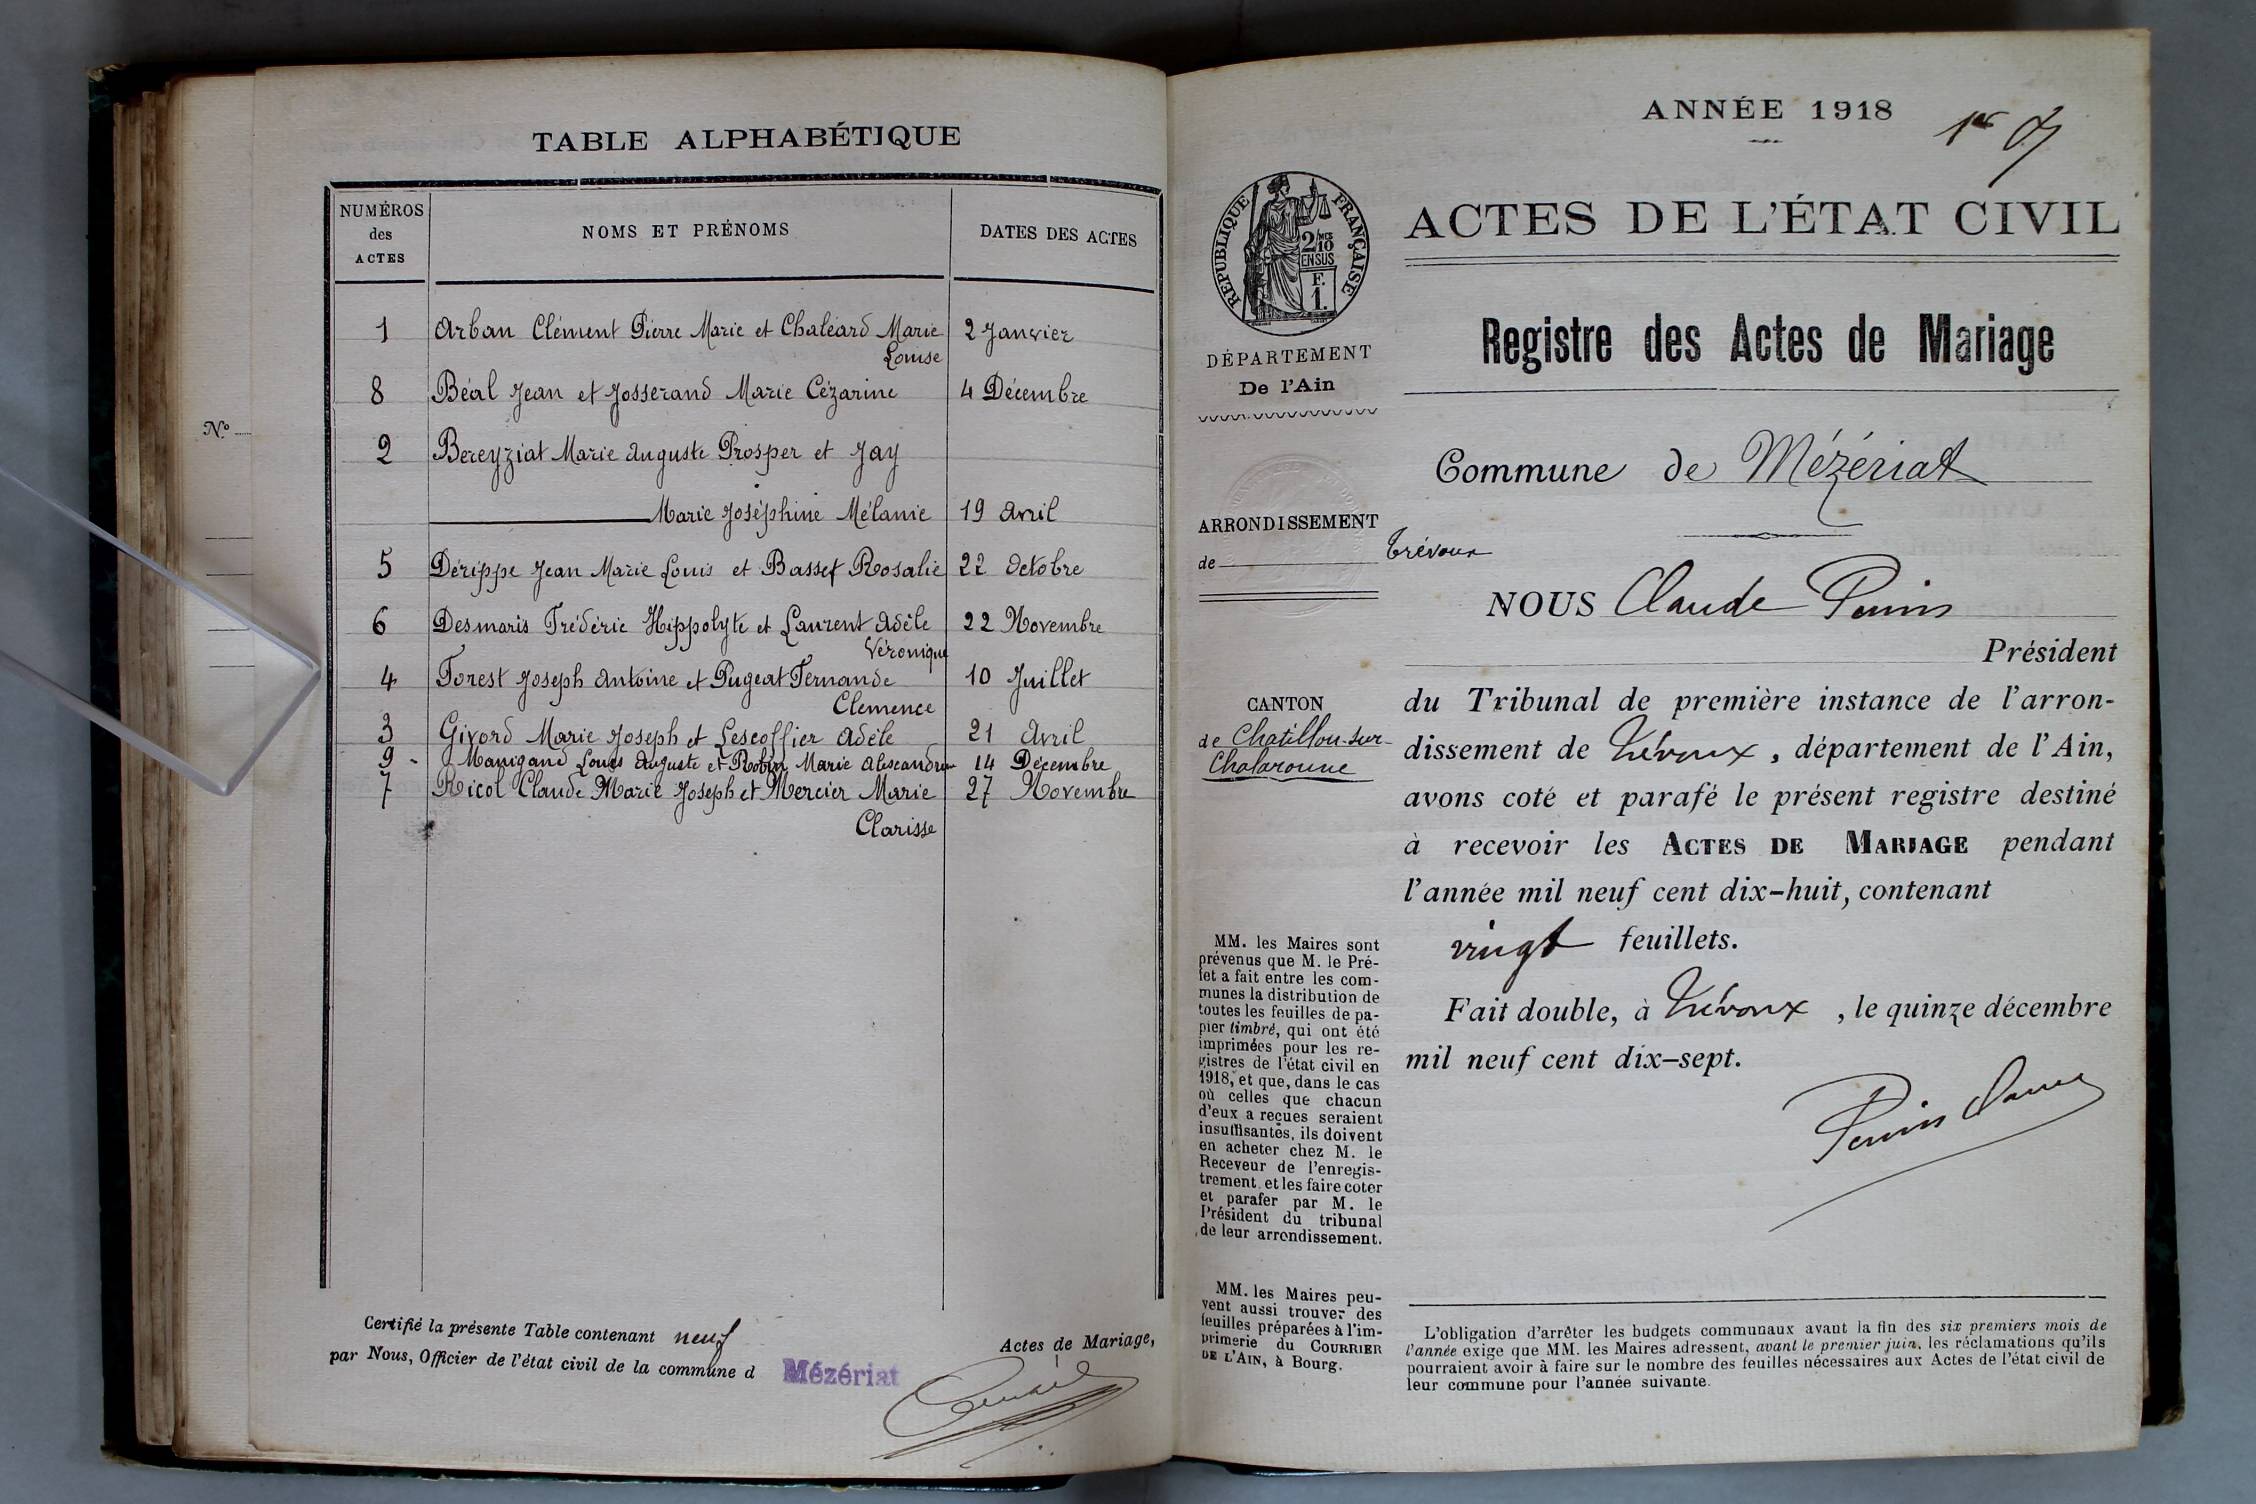 TABLE ALPHABÉTIQUE
NUMÉROS des ACTES
NOMS ET PRÉNOMS
DATES DES ACTES
1 Arban Clément Pierre Marie et Chaléard Marie 2 Janvier
Louise
8 Béal Jean et Josserand Marie Cézarine 4 Décembre
2 Bereyziat Marie Auguste Prosper et Jay
Marie Joséphine Mélanie 19 Avril
5 Dérippe Jean Marie Louis et Basset Rosalie 22 Octobre
6 Desmaris Frédéric Hippolyte et Laurent Adèle 22 Novembre
Véronique
4 Forest Joseph Antoine et Pugeat Fernande 10 Juillet
Clemence
3 Givord Marie Joseph et Lescoffier Adèle 21 Avril
9 - Manigand Louis Auguste et Robin Marie Alexandrine 14 Décembre
7 Ricol Claude Marie Joseph et Mercier Marie 27 Novembre
Clarisse
Certifié la présente Table contenant neuf Actes de Mariage,
par Nous, Officier de l'état civil de la commune d Mézériat
N.º
ANNÉE 1918
1er
RÉPUBLIQUE FRANÇAISE
2/10 MES
EN SUS
F.
1.
DÉPARTEMENT
De l'Ain
ARRONDISSEMENT
de Trévoux
CANTON
de Chatillon-sur-
Chalaronne
MM. les Maires sont
prévenus que M. le Pré-
fet a fait entre les com-
munes la distribution de
toutes les feuilles de pa-
pier timbré, qui ont été
imprimées pour les re-
gistres de l'état civil en
1918, et que, dans le cas
où celles que chacun
d'eux a reçues seraient
insuffisantes, ils doivent
en acheter chez M. le
Receveur de l'enregis-
trement et les faire coter
et parafer par M. le
Président du tribunal
de leur arrondissement.
MM. les Maires peu-
vent aussi trouver des
feuilles préparées à l'im-
primerie du COURRIER
DE L'AIN, à Bourg.
ACTES DE L'ÉTAT CIVIL
Registre des Actes de Mariage
Commune de Mézériat
NOUS Claude Perrin
Président
du Tribunal de première instance de l'arron-
dissement de Trévoux, département de l'Ain,
avons coté et parafé le présent registre destiné
à recevoir les ACTES DE MARIAGE pendant
l'année mil neuf cent dix-huit, contenant
vingt feuillets.
Fait double, à Trévoux, le quinze décembre
mil neuf cent dix-sept.
L'obligation d'arrêter les budgets communaux avant la fin des six premiers mois de
l'année exige que MM. les Maires adressent, avant le premier juin, les réclamations qu'ils
pourraient avoir à faire sur le nombre des feuilles nécessaires aux Actes de l'état civil de
leur commune pour l'année suivante.